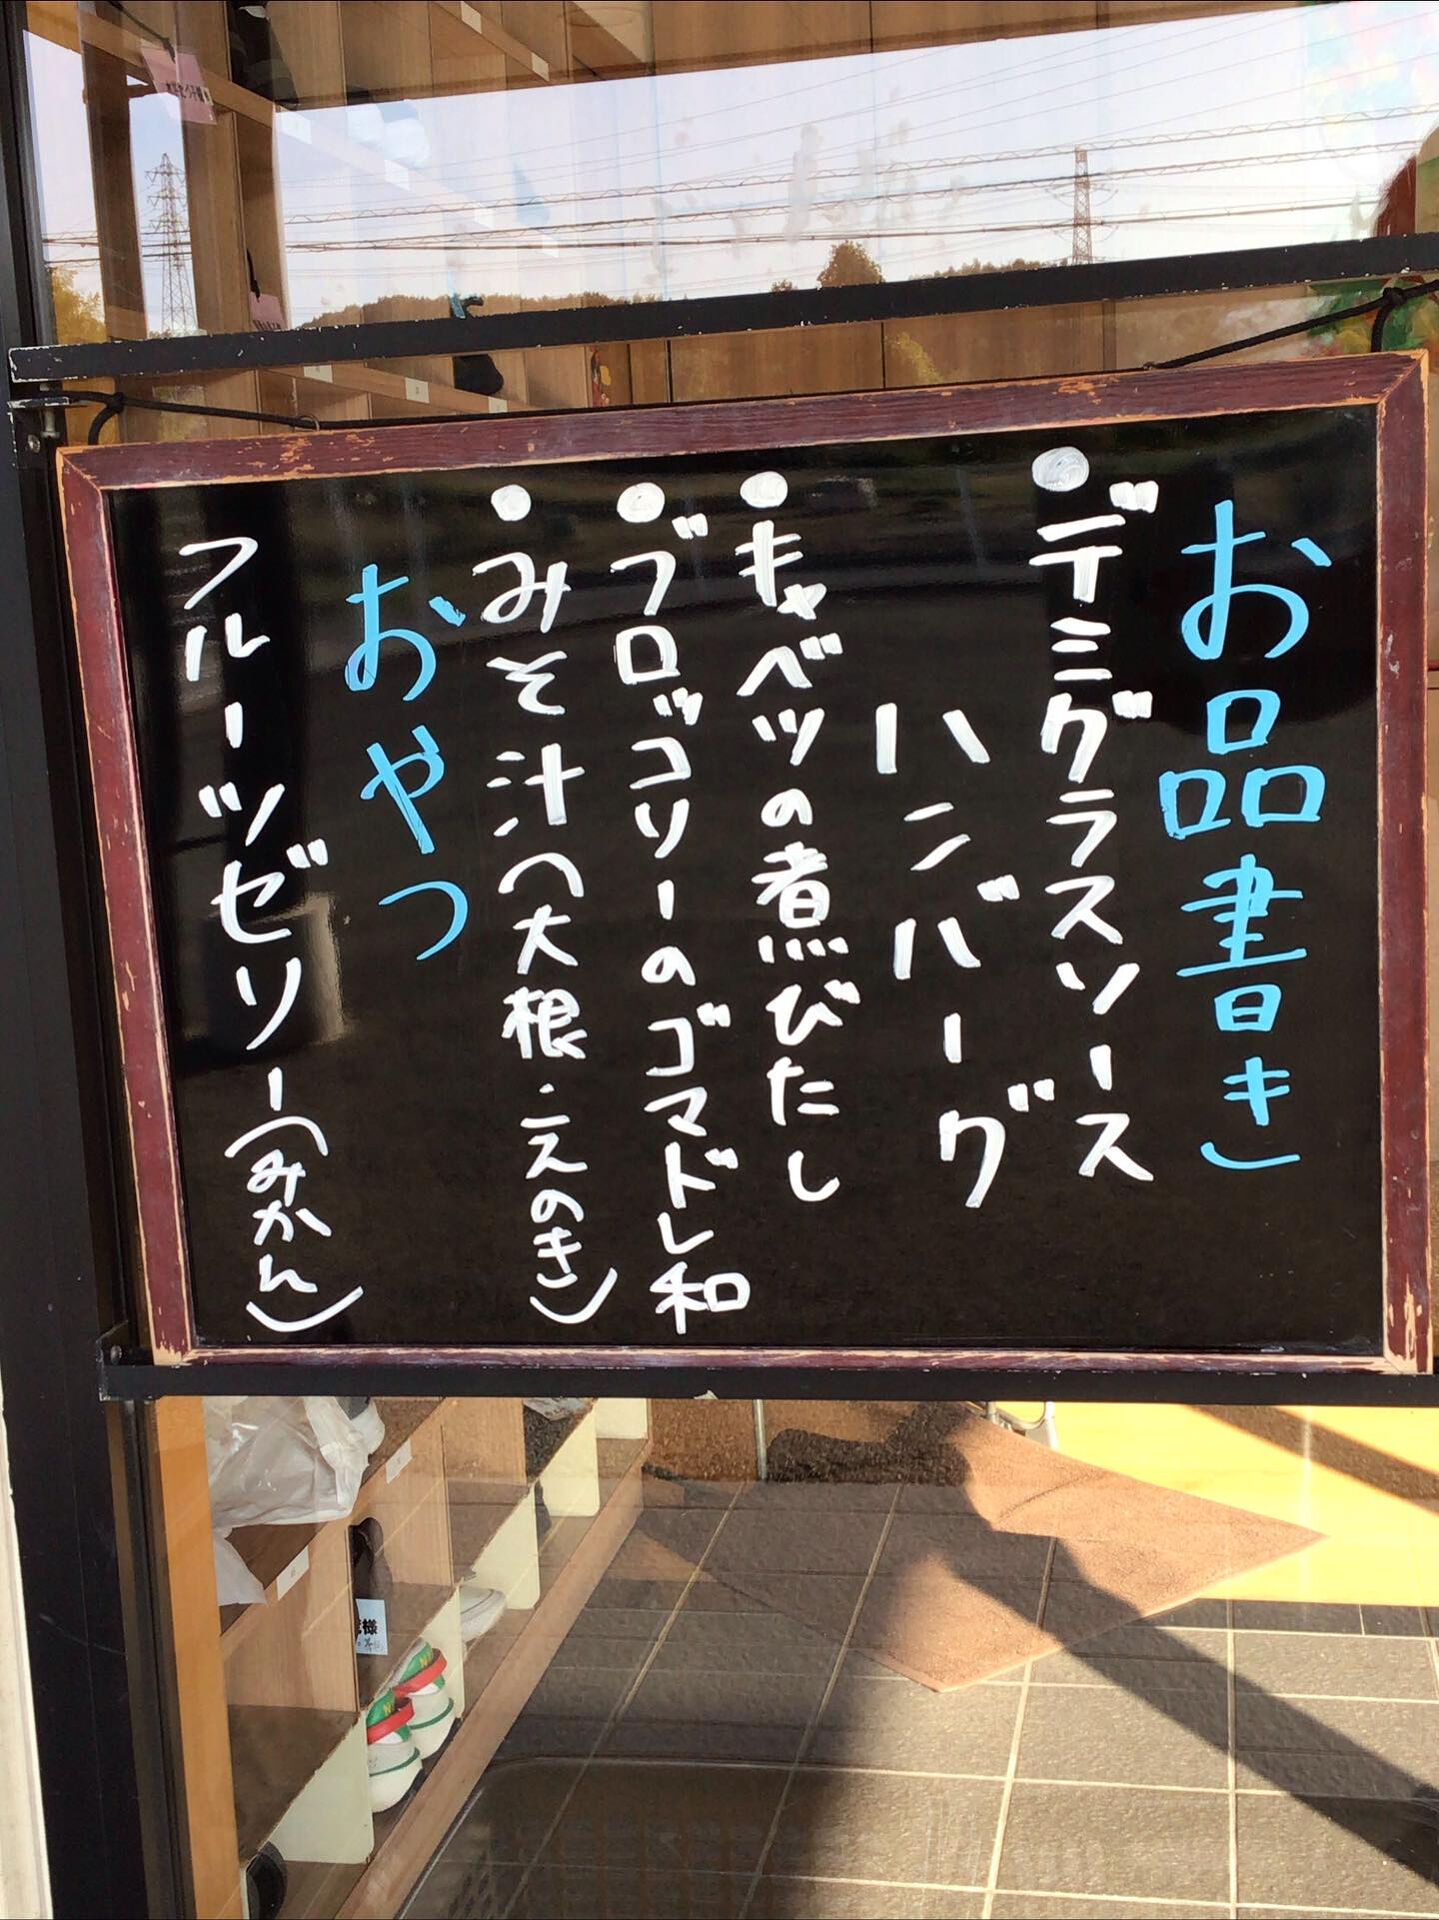 お品書き
●デミグラスソース
ハンバーグ
●キャベツの煮びたし
●ブロッコリーのゴマドレ和
●みそ汁(大根・えのき)
おやつ
フルーツゼリー(みかん)